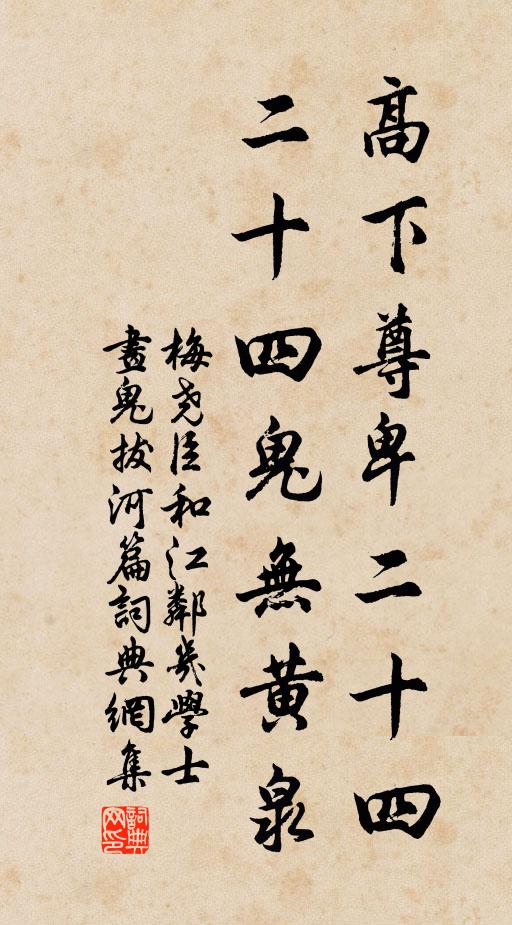 高下尊卑二十四
二十四鬼無黃泉
梅堯臣和江鄰幾學士
畫鬼拔河篇詞典網集
詞典网印